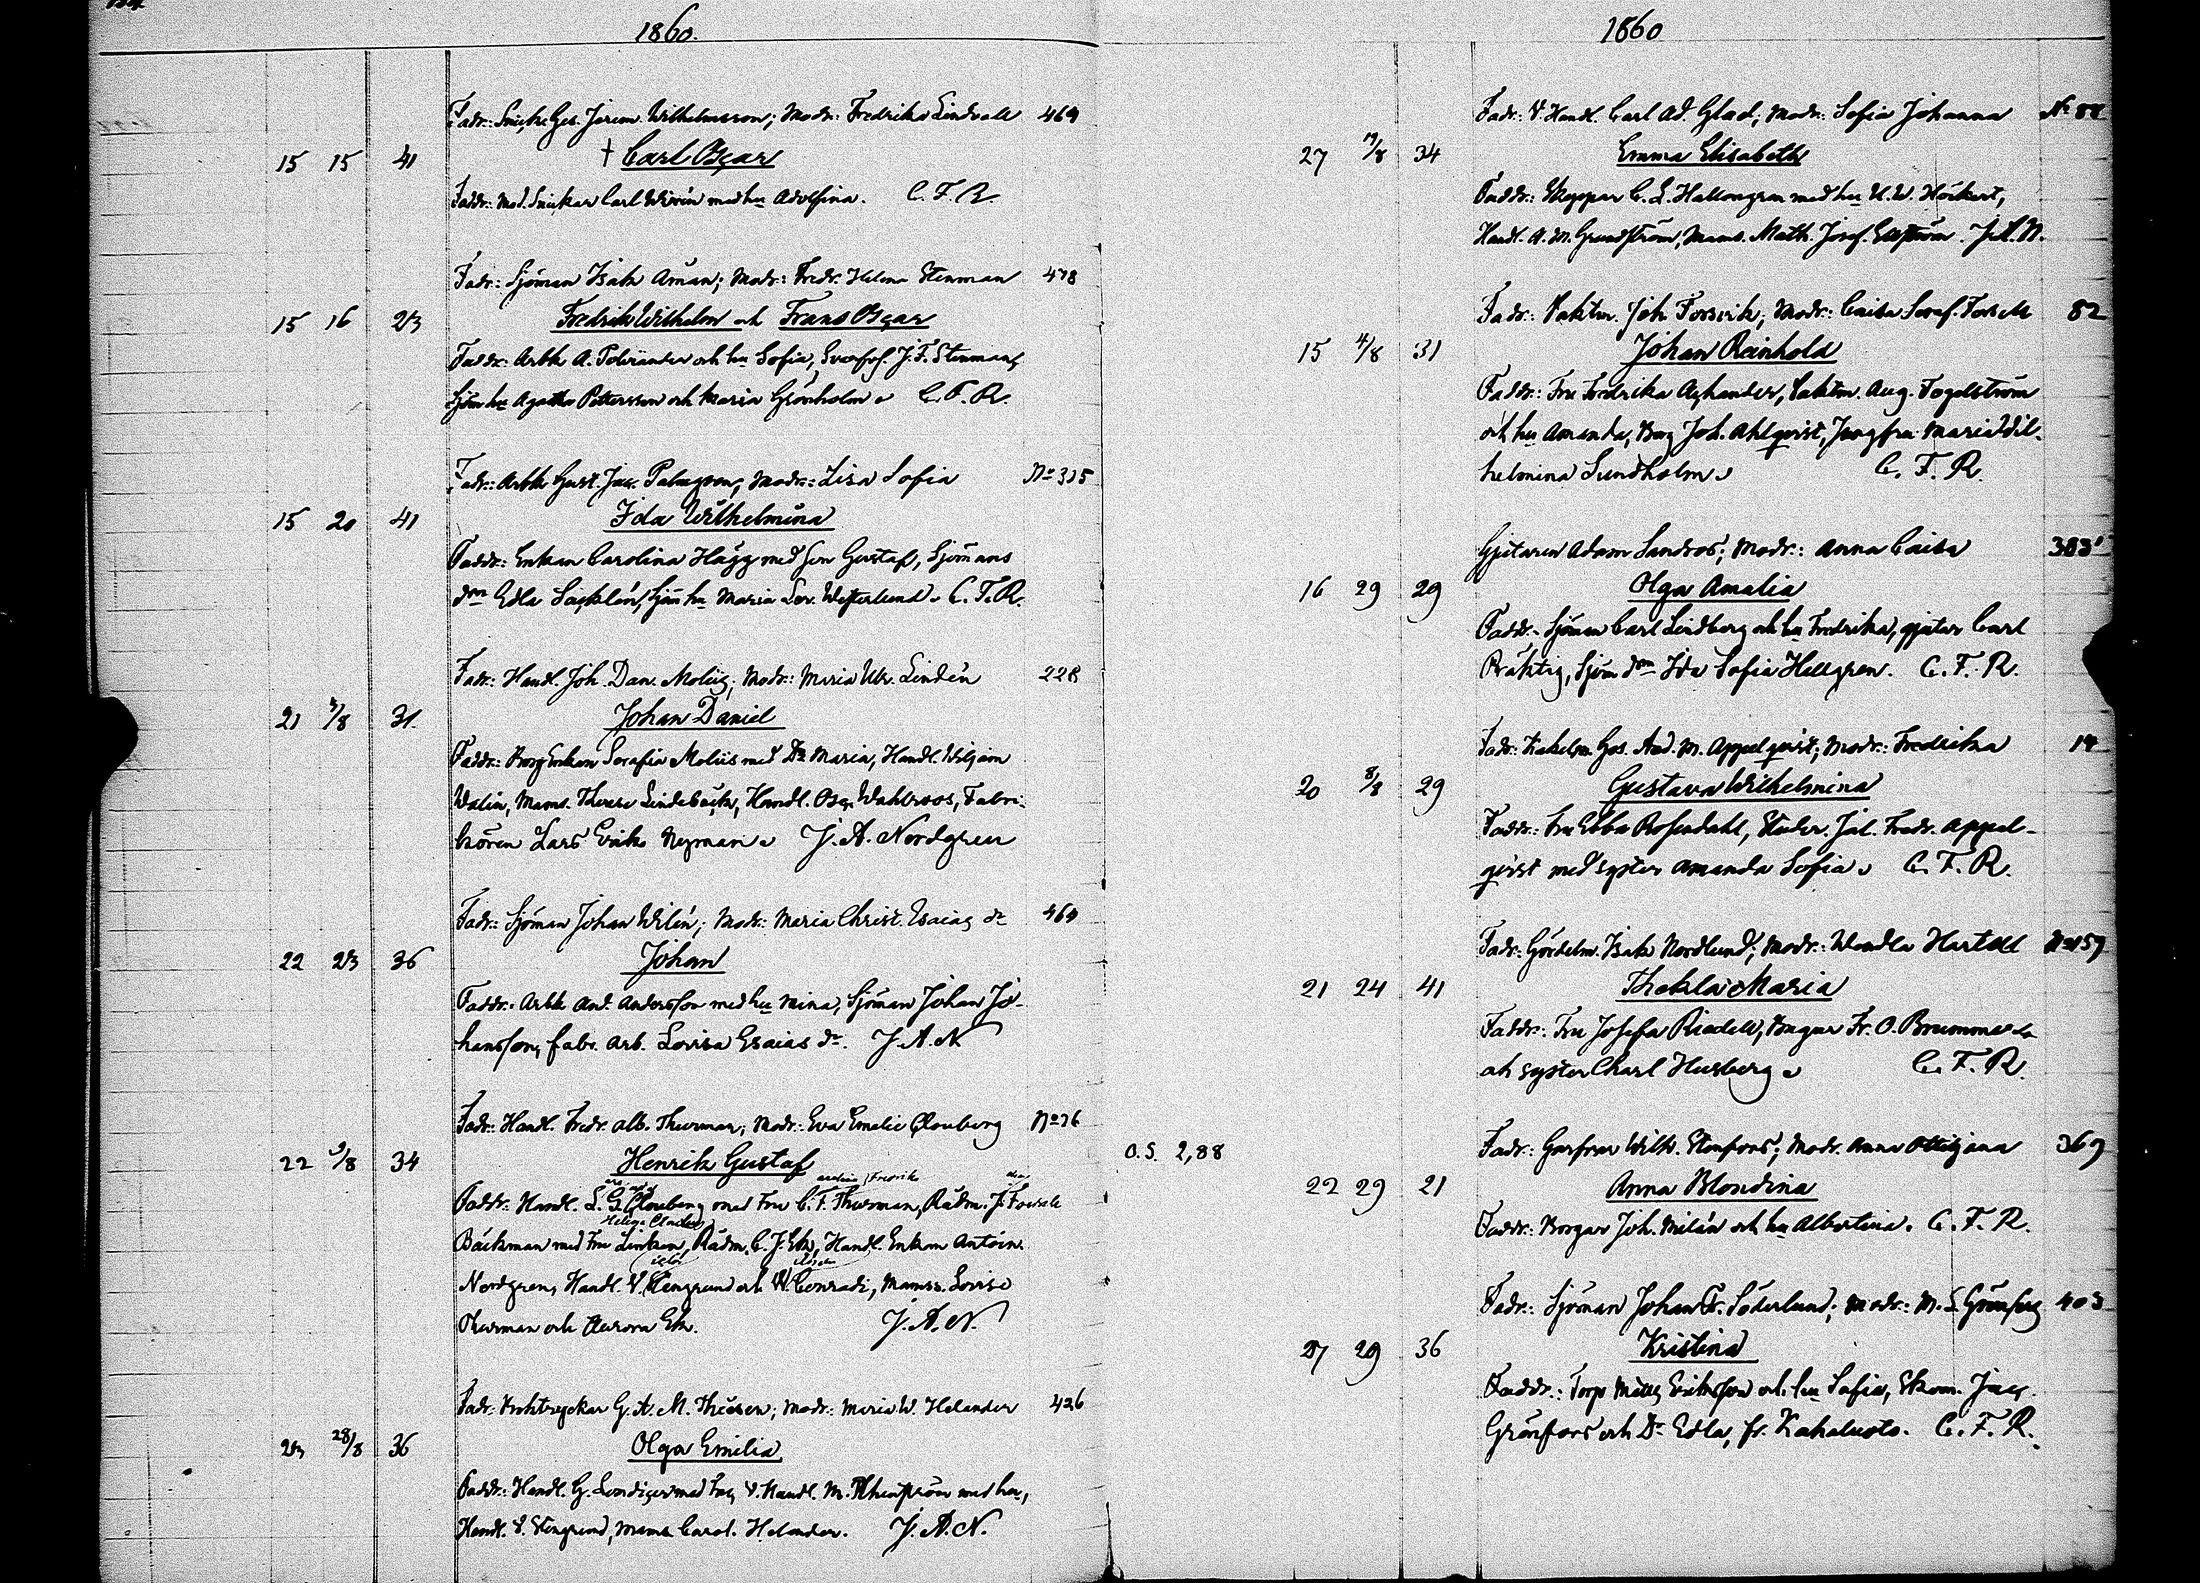 1860.
Fadr: Snick. Ges. Jerem. Wilhelmsson; Modr: Fredrika Lindvall 469
15 15 41 † Carl Oscar
Faddr: Mod. Snickar Carl med hu Adolfina. C. F. R.
Fadr: Sjöman Isak Åman; Modr: Fredr. Helena Stenman 478
15 16 23 Fredrik Wilhelm och Frans Oscar
Faddr: Arbk A. och hu Sofia, J. F. Stenman,
Sjöm hu Agatha Pettersson och Maria Grönholm. C. F. R.
Fadr: Arbk Gust. Jac. Modr: Lisa Sofia No 315
15 20 41 Ida Wilhelmina
Faddr: Enkan Carolina Hägg med Son Gustaf, Sjömans
dr Edla Sjöm hu Maria Lov. Westerlund. C. F. R.
Fadr: Handl. Joh. Dan. Moliis; Modr: Maria Ulr. Lindén 228
21 3/8 31 Johan Daniel
Faddr: Borg Enkan Serafia Moliis med Dr Maria, Handl. Wiljam
Walin, Mams. Therese Lindebäck, Handl. Osc. Wahlroos, Fabri-
kören Lars Erik Nyman. J. A. Nordgren
Fadr: Sjöman Johan Wilén; Modr: Maria Christ. Esaias dr 464
22 23 36 Johan
Faddr: Arbk And. Andersson med hu Mina, Sjöman Johan Jo-
hansson, fabr. arb. Lovisa Esaias dr. J. A. N
Fadr: Handl. Fredr. Alb. Thurman; Modr: Eva Emelie Clouberg No 76
22 5/8 34 Henrik Gustaf
Faddr: Handl. L. G. Clouberg med Fru C. F. Thurman, Rådm. J.
Bäckman med Fru Rådm. C. J. Ek, Handl. Enkan Antoin.
Nordgren, Handl. V. Stengrund och W. Conradi, Mamss. Lovise
Thurman och Aurora Ek. J. A. N.
Fadr: Boktryckar G. A. M. Modr: Maria W. Helander 426
23 28/8 36 Olga Emilia
Faddr: Handl. G. med V. Handl. M. med hu,
Handl. V. Stengrund, Mams Carol. Helander. J. A. N.
1860
Fadr: V. Handl. Carl Ad. Glad; Modr: Sofia Johanna No 88
27 34 Emma Elisabeth
Faddr: Skeppar C. L. Hallongren med hu U. W. Höckert,
Handl. A. M. Grundström, Mams. Math. Josef. J. A. N.
Fadr: Vaktm. Joh Forsvik; Modr: Caisa Seraf. 82
15 4/8 31 Johan Reinhold
Faddr: Fru Fredrika Vaktm. Aug. Fogelström
och hu Amanda, Borg Joh. Ahlqvist, Jungfru Maria Wil-
helmina Sundholm. C. F. R.
Gjutaren Adam Sandros; Modr: Anna Caisa 383
16 29 29 Olga Amalia
Faddr: Sjöman Carl Lindberg och hu Fredrika, gjutar Carl
Präktig, Sjöm dr Ida Sofia Hellgren. C. F. R.
Fadr: Kakelm. Ges. And. M. Appelqvist; Modr: Fredrika 14
20 8/8 29 Gustava Wilhelmina
Faddr: Fru Ebba Rosendahl, Studer. Jal. Fredr. Appel-
qvist med syster Amanda Sofia. C. F. R.
Fadr: Gördelm. Isak Nordlund; Modr: Wendla Hartell No 157
21 24 41 Thekla Maria
Faddr: Fru Josefa Riadell, Bagar Fr. O. Brummer
och syster Charl Husberg. C. F. R.
O. S. 2,88
Fadr: Garfvar Wilh. Stenfors; Modr. Anna Ottiljana 369
22 29 21 Anna Blondina
Faddr: Borgar Joh. Milén och hu Albertina. C. F. R.
Fadr: Sjöman Johan Fr. Söderlund; Modr: M. S. 403
27 29 36 Kristina
Faddr: Torp Matts Eriksson och hu Sofia, Skom. Jac.
Grönfors och Dr Edla, fr. Kahaluoto. C. F. R.